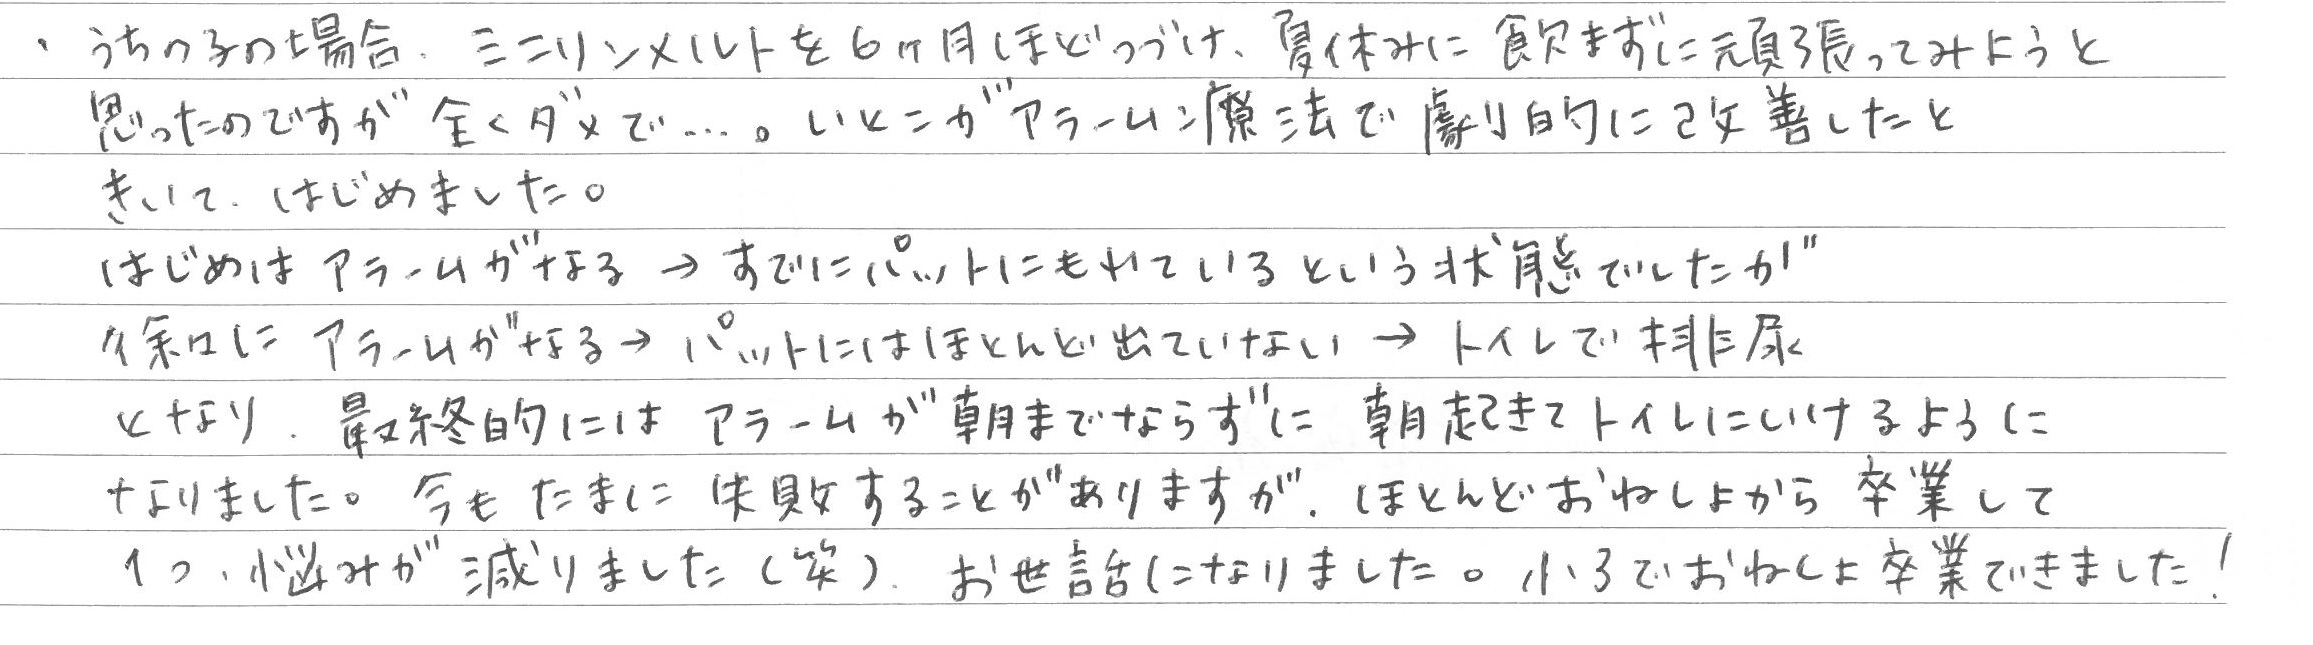 ・うちの子の場合、ミニリンメルトを6ヶ月ほどつづけ、夏休みに飲まずに頑張ってみようと
思ったのですが全くダメで…。いとこがアラーム療法で劇的に改善したと
きいて、はじめました。
はじめはアラームがなる→すでにパットにもれているという状態でしたが
徐々にアラームがなる→パットにはほとんど出ていない→トイレで排尿
となり、最終的にはアラームが朝までならずに朝起きてトイレにいけるように
なりました。今もたまに失敗することがありますが、ほとんどおねしょから卒業して
1つ、悩みが減りました(笑)。お世話になりました。小3でおねしょ卒業できました!